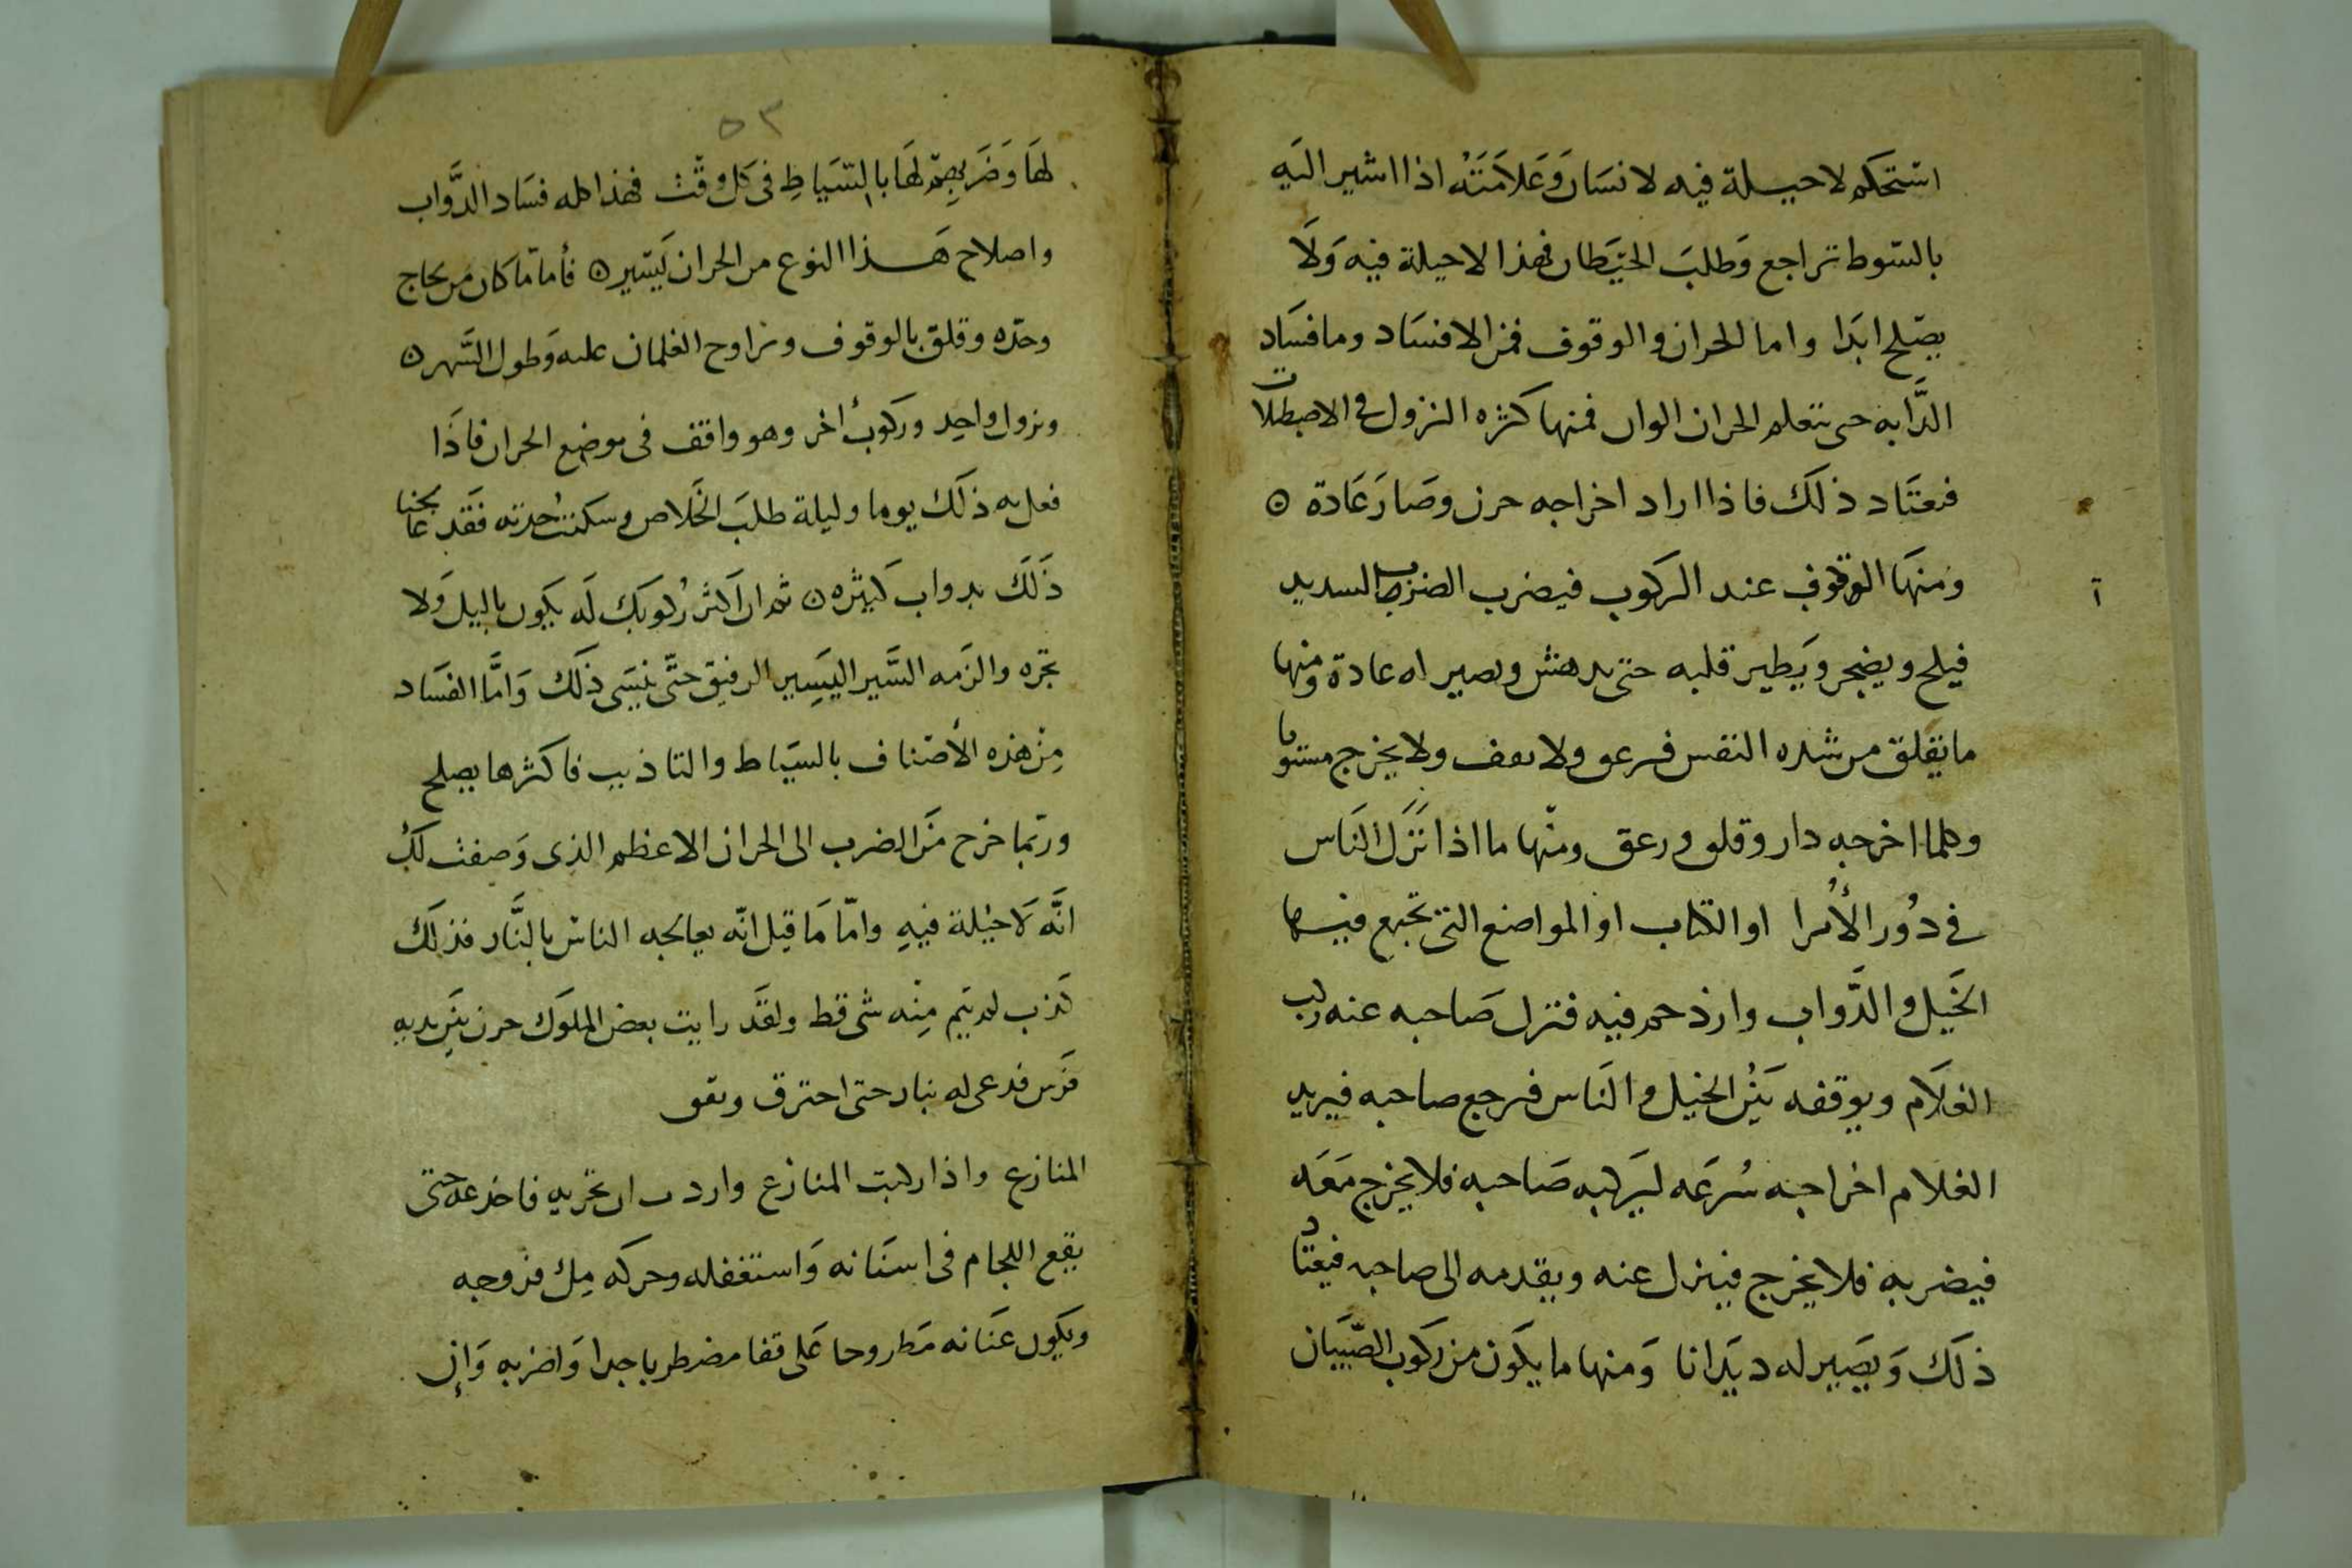 استحكم لاحيلة فيه لانسان وعلامته اذا اشير اليه
بالسوط تراجع وطلب الحيطان فهذا لاحيلة فيه ولا
يصلح ابدا واما الحران والوقوف فمن الافساد وما فساد
الدابه حتى تتعلم الحران الوان فمنها كثره النزول في الاصطبلات
فيعتاد ذلك فاذا اراد اخراجه حرن وصار عادة
ومنها الوقوف عند الركوب فيضرب الضرب الشديد
فيلح ويضجر ويطير قلبه حتى يدهش ويصير له عادة ومنها
ما يقلق من شده النفس فيرعق ولا يقف ولا يخرج مستويا
وكلما اخرجه دار وقلق ورعق ومنها ما اذا نزل الناس
في دور الأمرا او الكتاب او المواضع التي تجمع فيها
الخيل والدواب وازدحم فيه فنزل صاحبه عنه ركب
الغلام ويوقفه بين الخيل والناس فيرجع صاحبه فيريد
الغلام اخراجه سرعه ليركبه صاحبه فلا يخرج معه
فيضربه فلا يخرج فينزل عنه ويقدمه الى صاحبه فيعتاد
ذلك ويصير له ديدانا ومنها ما يكون من ركوب الصبيان
٥٣
لها وضربهم لها بالسياط في كل وقت فهذا كله فساد الدواب
واصلاح هذا النوع من الحران يسير فأما ما كان من لجاج
وحده وقلق بالوقوف وتراوح الغلمان عليه وطول السهر
ونزول واحد وركوب اخر وهو واقف في موضع الحران فاذا
فعل به ذلك يوما وليلة طلب الخلاص وسكنت حدته فقد عالجنا
ذلك بدواب كثيره ثم ان اكثر ركوبك له يكون بالليل ولا
تجره والزمه السير اليسير الرفيق حتى ينسى ذلك واما الفساد
من هذه الأصناف بالسياط والتاذيب فاكثرها يصلح
وربما خرج من الضرب الى الحران الاعظم الذي وصفت لك
انه لا حيلة فيه واما ما قيل انه يعالجه الناس بالنار فذلك
كذب لم يتم منه شي قط ولقد رايت بعض الملوك حرن بين يديه
فرس فدعى له بنار حتى احترق ونفق
المنازع واذا ركبت المنازع واردت ان تجريه فاخدعه حتى
يقع اللجام في اسنانه واستغفله وحركه مل فروجه
ويكون عنانه مطروحا على قفا مضطربا جدا واضربه وان